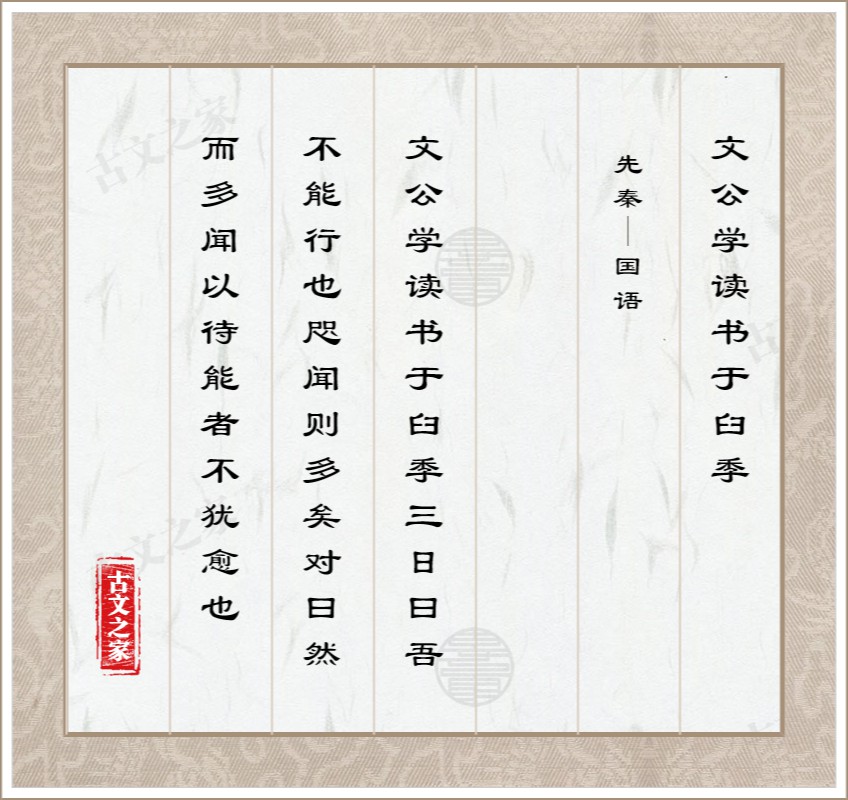 文公学读书于臼季
先秦—国语
文公学读书于臼季三日曰吾
不能行也咫闻则多矣对曰然
而多闻以待能者不犹愈也
古文之家
古文之家
古文之家